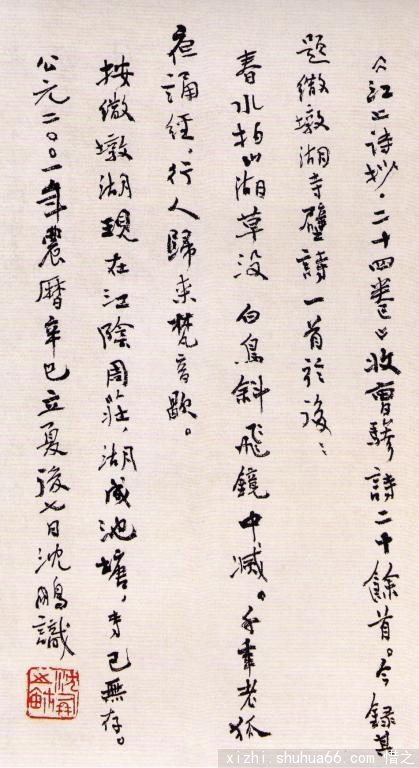 《江上诗抄·二十四卷》收曹骖詩二十餘首。今録其
题繖墩湖寺壁詩一首於後：
春水拍山湖草没 白鳥斜飛鏡中滅。千年老狐
夜誦經，行人歸来梵音歇。
按繖墩湖現在江陰周莊，湖成池塘，寺已無存。
公元二〇〇一年農曆辛巳立夏後七日沈鵬識
xizhi.shuhua66.com/惜之